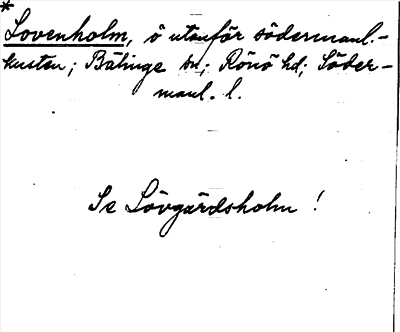 *
Lovenholm, ö utanför södermanl.-
kusten; Bälinge sn; Rönö hd; Söder-
manl. l.
Se Lövgardsholm !